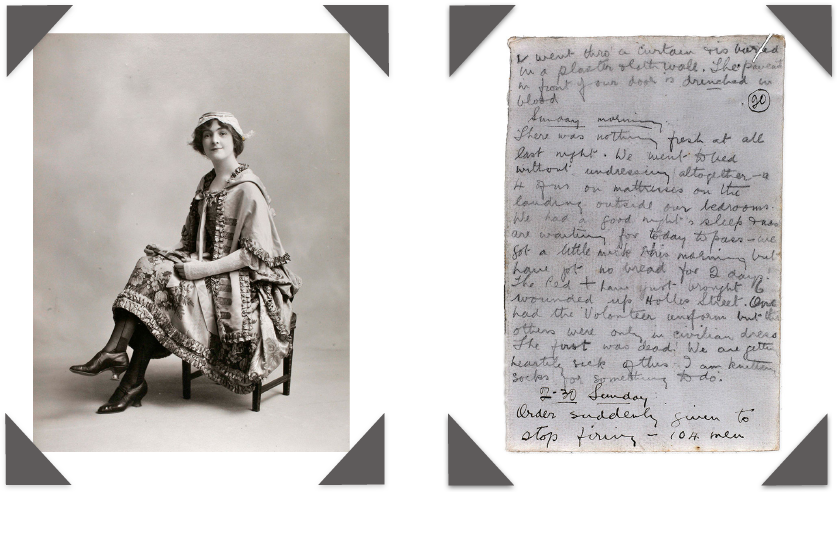 & went thro' a curtain & is buried
in a plaster & lath wall. The pavement
in front of our door is drenched in
blood
20
Sunday morning.
There was nothing fresh at all
last night. We went to bed
without undressing altogether - a
4 of us on mattresses on the
landing outside our bedrooms.
We had a good night's sleep & now
are waiting for today to pass - we
got a little milk this morning but
have got no bread for 2 days.
The Red + have just brought 6
wounded up Holles Street. One
had the Volunteer uniform but the
others were only in civilian dress
The first was dead. We are getting
heartily sick of this. I am knitting
socks for something to do.
2-30 Sunday
Order suddenly given to
stop firing - 104 men